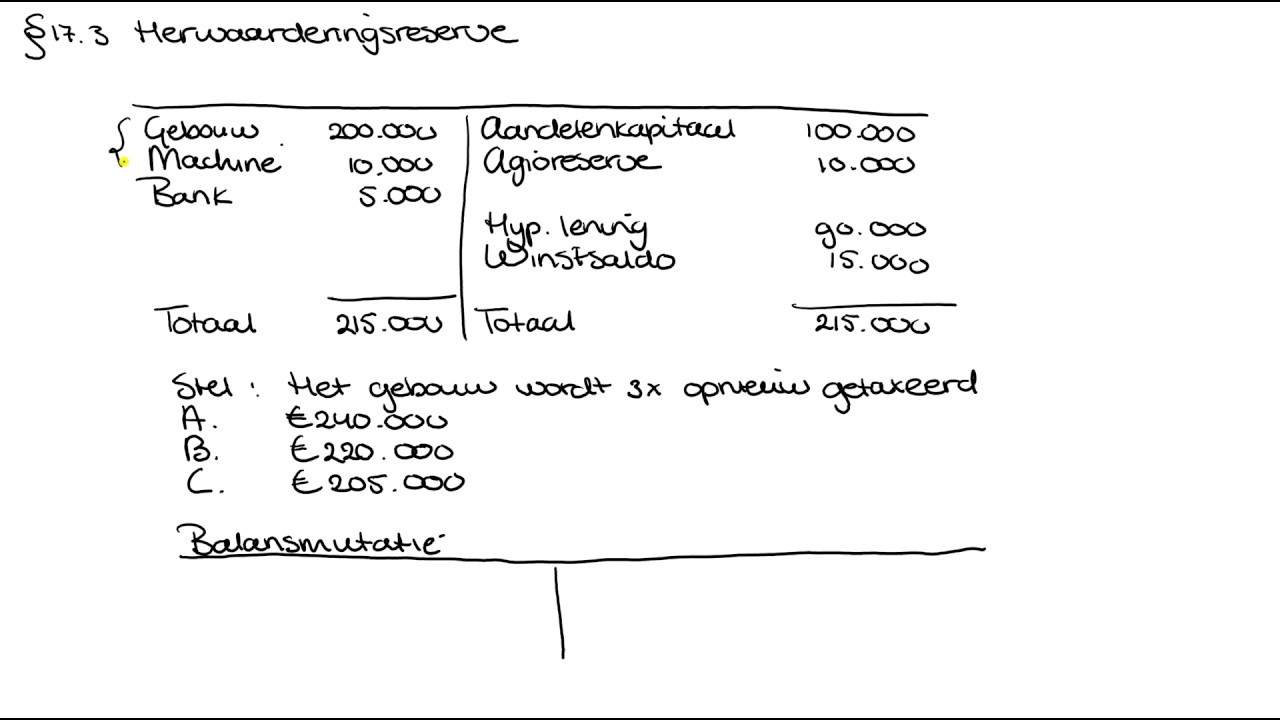 § 17.3 Herwaarderingsreserve
Gebouw 200.000 Aandelenkapitaal 100.000
Machine 10.000 Agioreserve 10.000
Bank 5.000
Hyp. lening 90.000
Winstsaldo 15.000
Totaal 215.000 Totaal 215.000
Stel : Het gebouw wordt 3x opnieuw getaxeerd
A. € 240.000
B. € 220.000
C. € 205.000
Balansmutatie